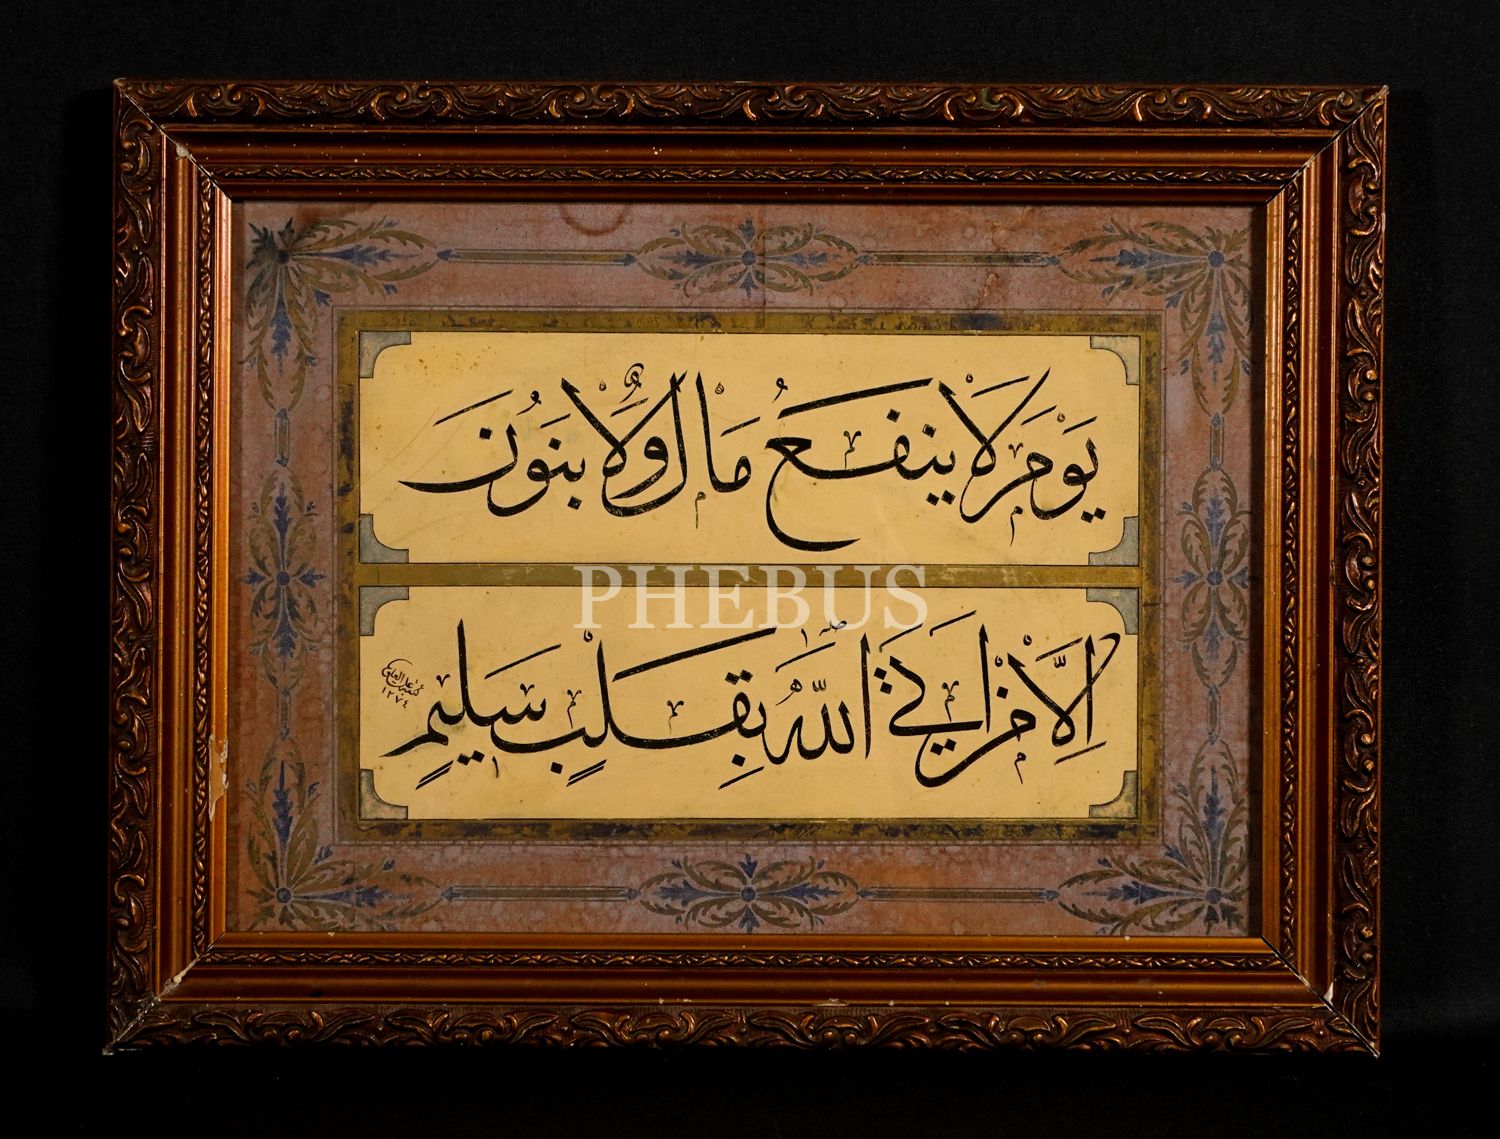 يَوْمَ لَا يَنْفَعُ مَالٌ وَلَا بَنُونَ
PHEBUS
اِلَّا مَنْ اَتَى اللّٰهَ بِقَلْبٍ سَلِيمٍ
١٢٧٤